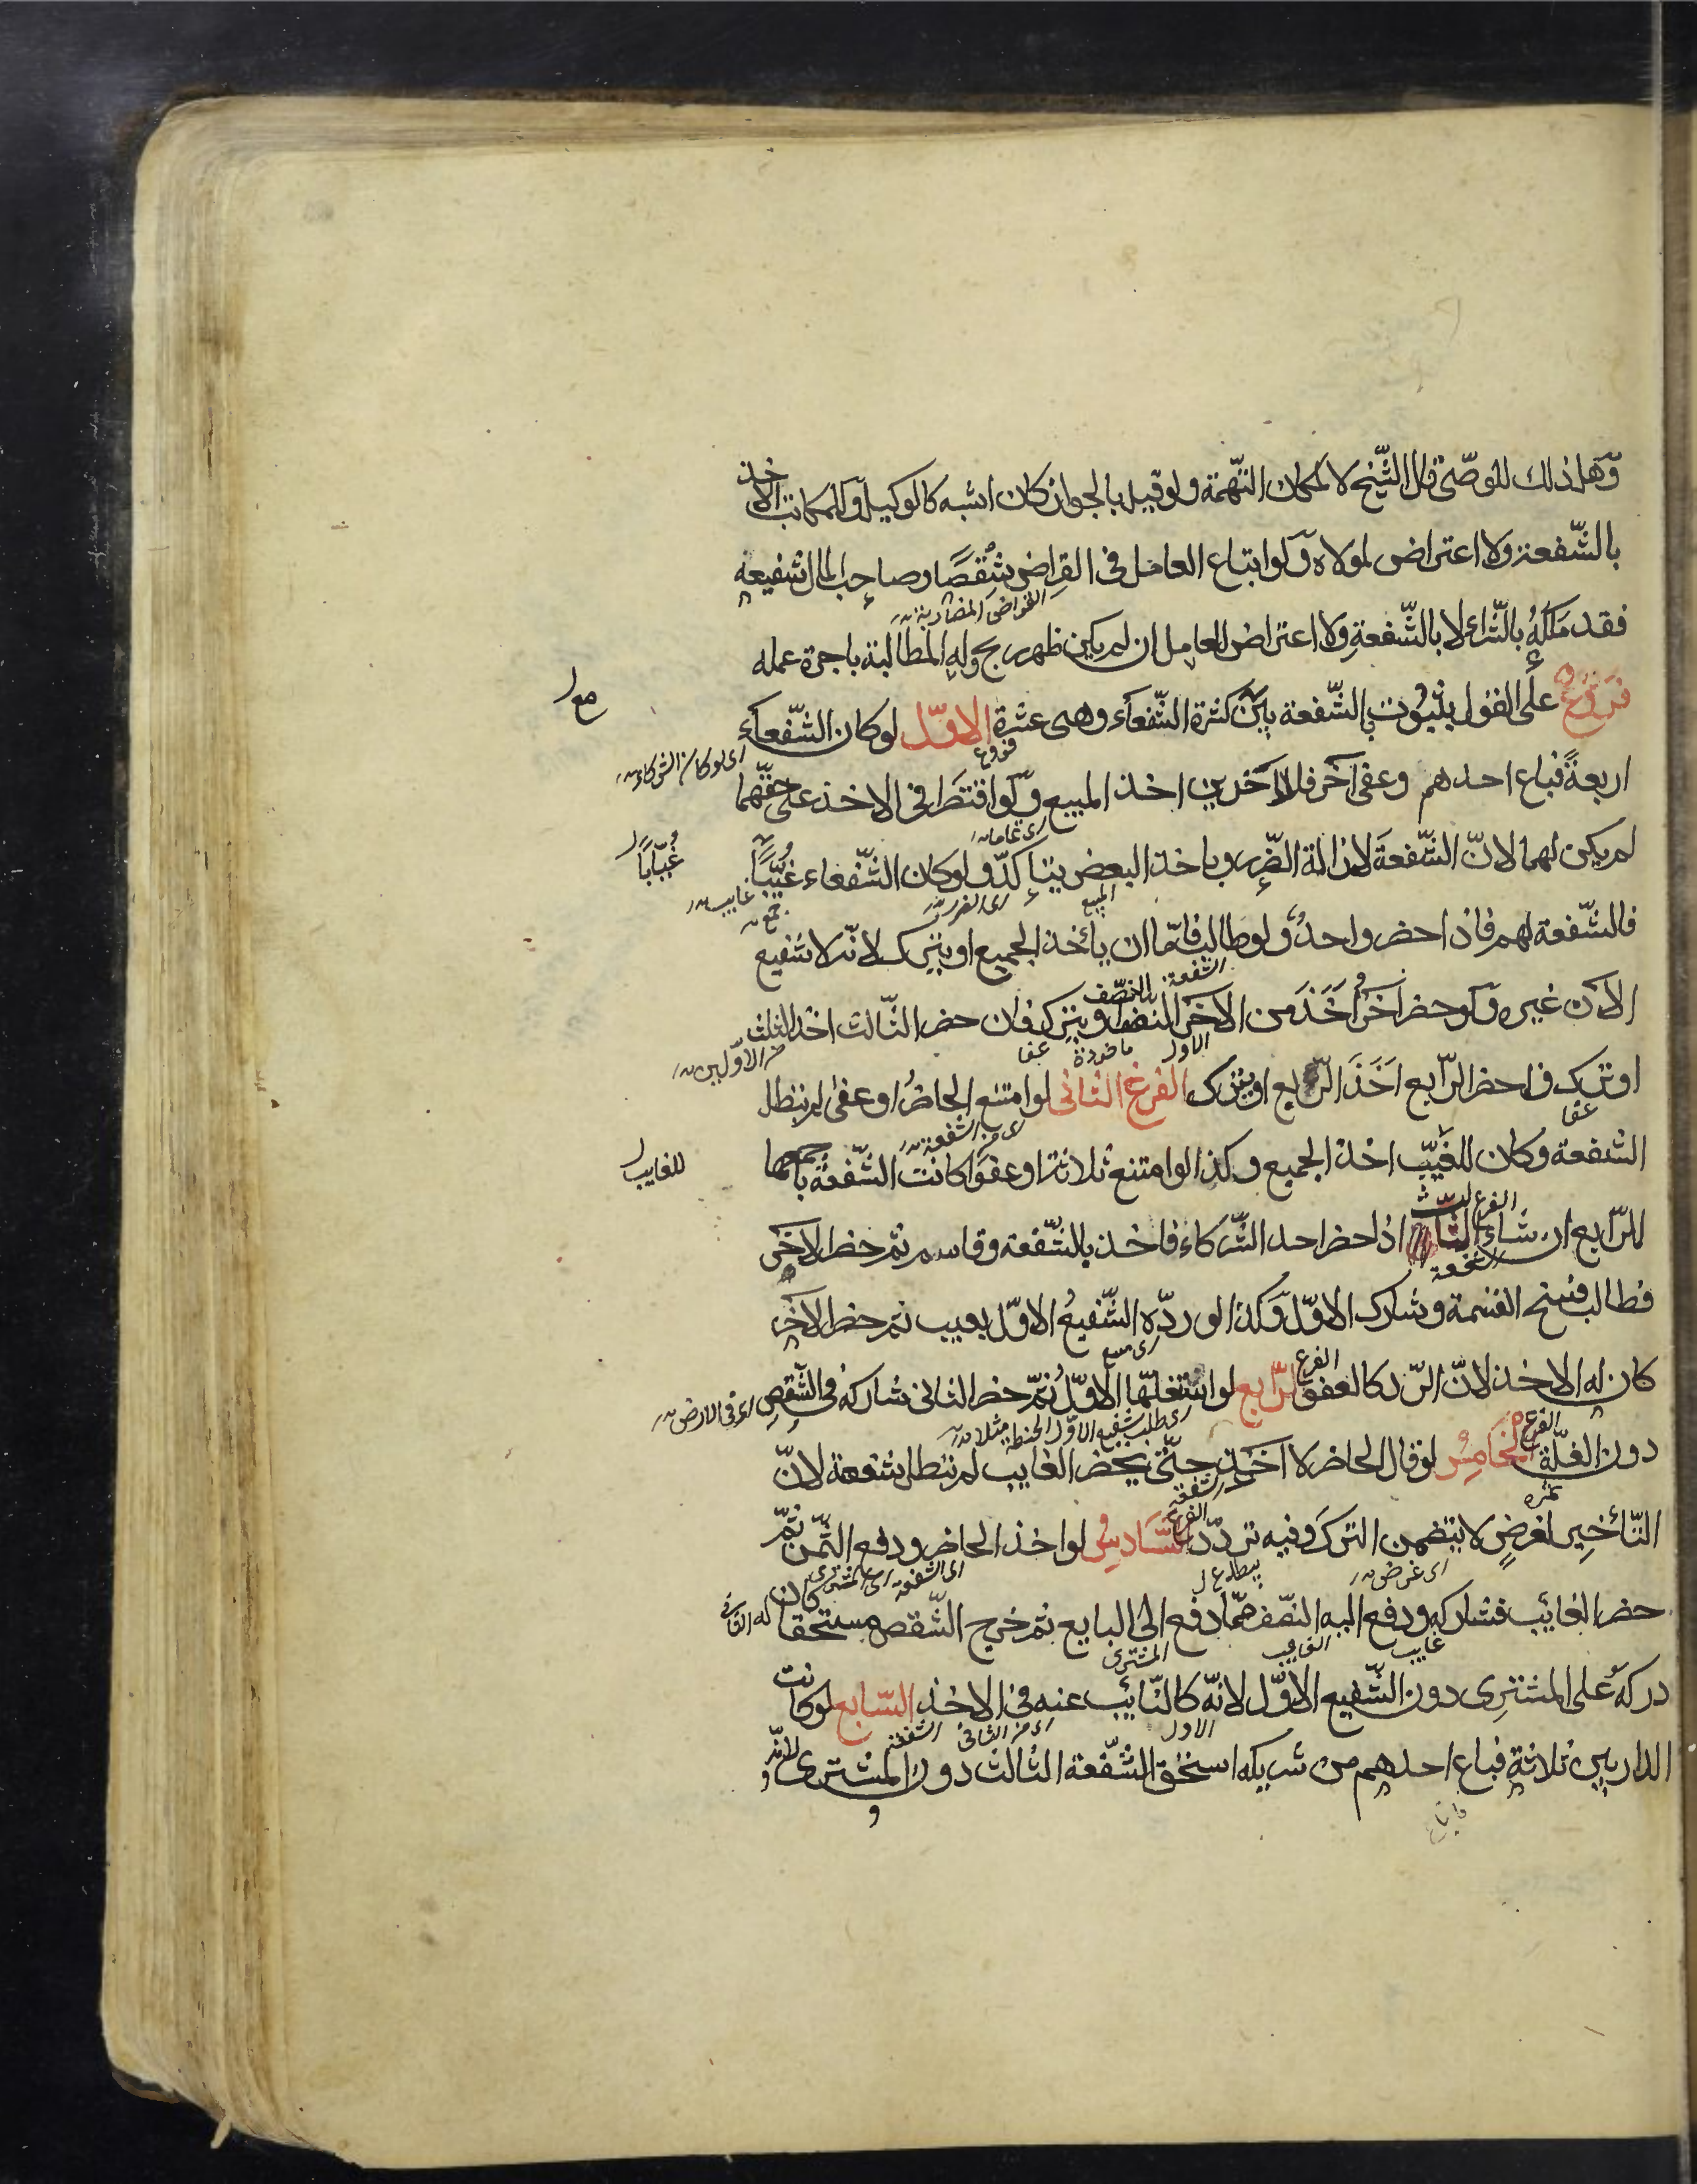 وهل ذلك للوصّى قال الشّيخ لا لمكان التّهمة ولو قيل بالجواز كان اشبه كالوكيل وللمكاتب الاخذ
بالشّفعة ولا اعتراض لمولاه ولو ابتاع العامل فى القراض شقصًا وصاحب المال شفيعه
القراض المضاربة
فقد ملكه بالشّراء لا بالشّفعة ولا اعتراض للعامل ان لم يكن ظهر ربح وله المطالبة باجرة عمله
فروع على القول بثبوت الشّفعة مع كثرة الشّفعاء وهى عشرة الاوّل لو كان الشّفعاء
فروع
اى لو كان الشركاء
اربعةً فباع احدهم وعفى آخر فللآخرين اخذ المبيع ولو اقتصرا فى الاخذ على حقّهما
اى تماما
لم يكن لهما لانّ الشّفعة لازالة الضّرر وباخذ البعض يتاكدّ ولو كان الشّفعاء غيّبًا
غُيّابًا
المبيع اى الضرر غايب جمع
فالشّفعة لهم فاذا حضر واحدٌ ولو طالب فامّا ان يأخذ الجميع او يترك لانّه لا شفيع
الشفعة بالنصّف
الآن غيره ولو حضر آخر اخذ من الآخر النصف او يترك فان حضر الثّالث اخذ الثلث
الاول عفا من الاوّلين
او ترك فاحضر الرّابع اخذ الرّبع او يترك الفرع الثانى لو امتنع الحاضرُ او عفى لم تبطل
عفا اى من الشفعة
الشفعة وكان للغيّب اخذ الجميع وكذا لو امتنع ثلاثة او عفوا كانت الشّفعةُ باجمعها
للغايب
الفرع
للرّابع ان شاء الثالث اذا حضر احد الشّركاء فاخذ بالشّفعة وقاسم ثم حضر الآخر
فطالب فسخ القسمة وشارك الاوّل وكذا لو ردّه الشّفيعُ الاوّل بعيب ثم حضر الآخر
الفرع
كان له الاخذ لانّ الرّد كالعفو الرّابع لو استغلّها الاوّلُ ثمّ حضر الثانى شاركه فى الشّقص
اى فى الارض
الفرع
دون الغلّة الخامسُ لو قال الحاضر لا آخذ حتّى يحضر الغايب لم تبطل شفعة لانّ
ثمره الفرع
التّأخير لغرضٍ لا يتضمن الترك وفيه تردّد السّادس لو اخذ الحاضر ودفع الثّمن ثمّ
اى غرض اى الشفعة
حضر الغائب فشاركه ودفع اليه النّصف ممّا دفع الى البايع ثم خرج الشّقص مستحقا كان
غايب الغايب المشترى
دركه على المشترى دون الشّفيع الاوّل لانّه كالنّائب عنه فى الاخذ السّابع لو كانت
الاول اى من الثانى الشفعة
الدار بين ثلاثة فباع احدهم من شريكه استحق الشّفعة الثالث دون المشترى لانّه